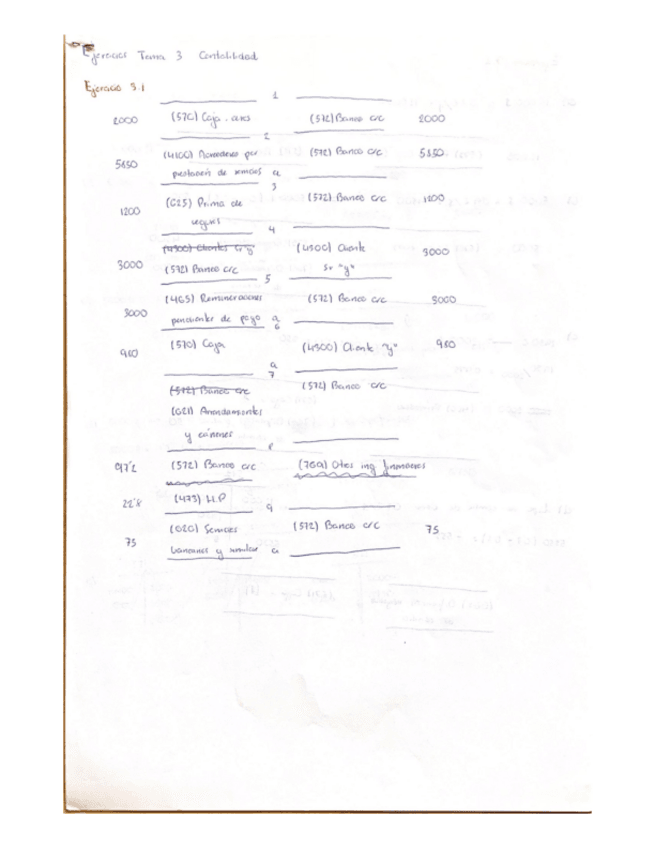 Ejercicios Tema 3 Contabilidad
Ejercicio 3.1
1
2000 (570) Caja, euros (572) Banco c/c 2000
2
5850 (4100) Acreedores por (572) Banco c/c 5850
prestación de servicios a
3
1200 (625) Prima de (572) Banco c/c 1200
seguros
4
(4300) Clientes (4300) Cliente 3000
3000 (572) Banco c/c Sr "y"
5
3000 (465) Remuneraciones (572) Banco c/c 3000
pendientes de pago a
6
980 (570) Caja (4300) Cliente "y" 980
a
7
(572) Banco c/c (572) Banco c/c
(621) Arrendamientos
y cánones
8
97'2 (572) Banco c/c (769) Otros ing financieros
22'8 (473) H.P
9
75 (626) Servicios (572) Banco c/c 75
bancarios y similar a